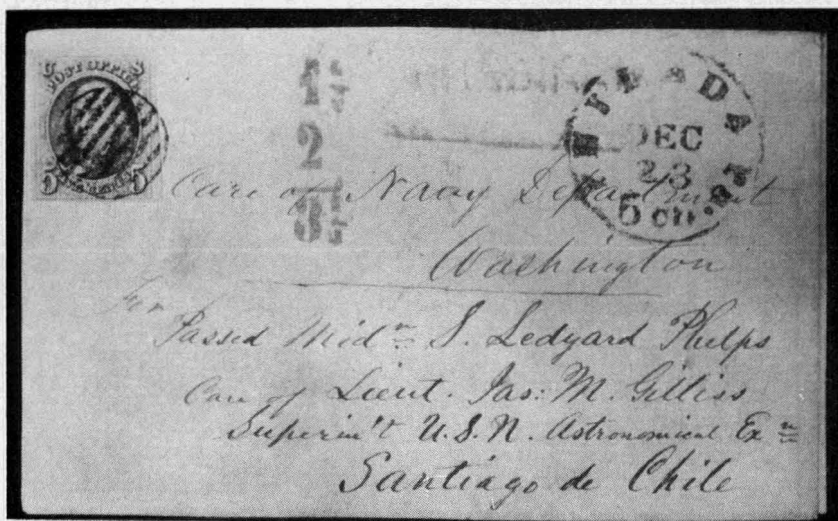 POST OFFICE
5 5
1
2
3
PHILADA Pa.
DEC
23
5 cts.
Care of Navy Department
Washington
For
Passed Midn S. Ledyard Phelps
Care of Lieut. Jas: M. Gilliss
Superin't U.S.N. Astronomical Exn
Santiago de Chile